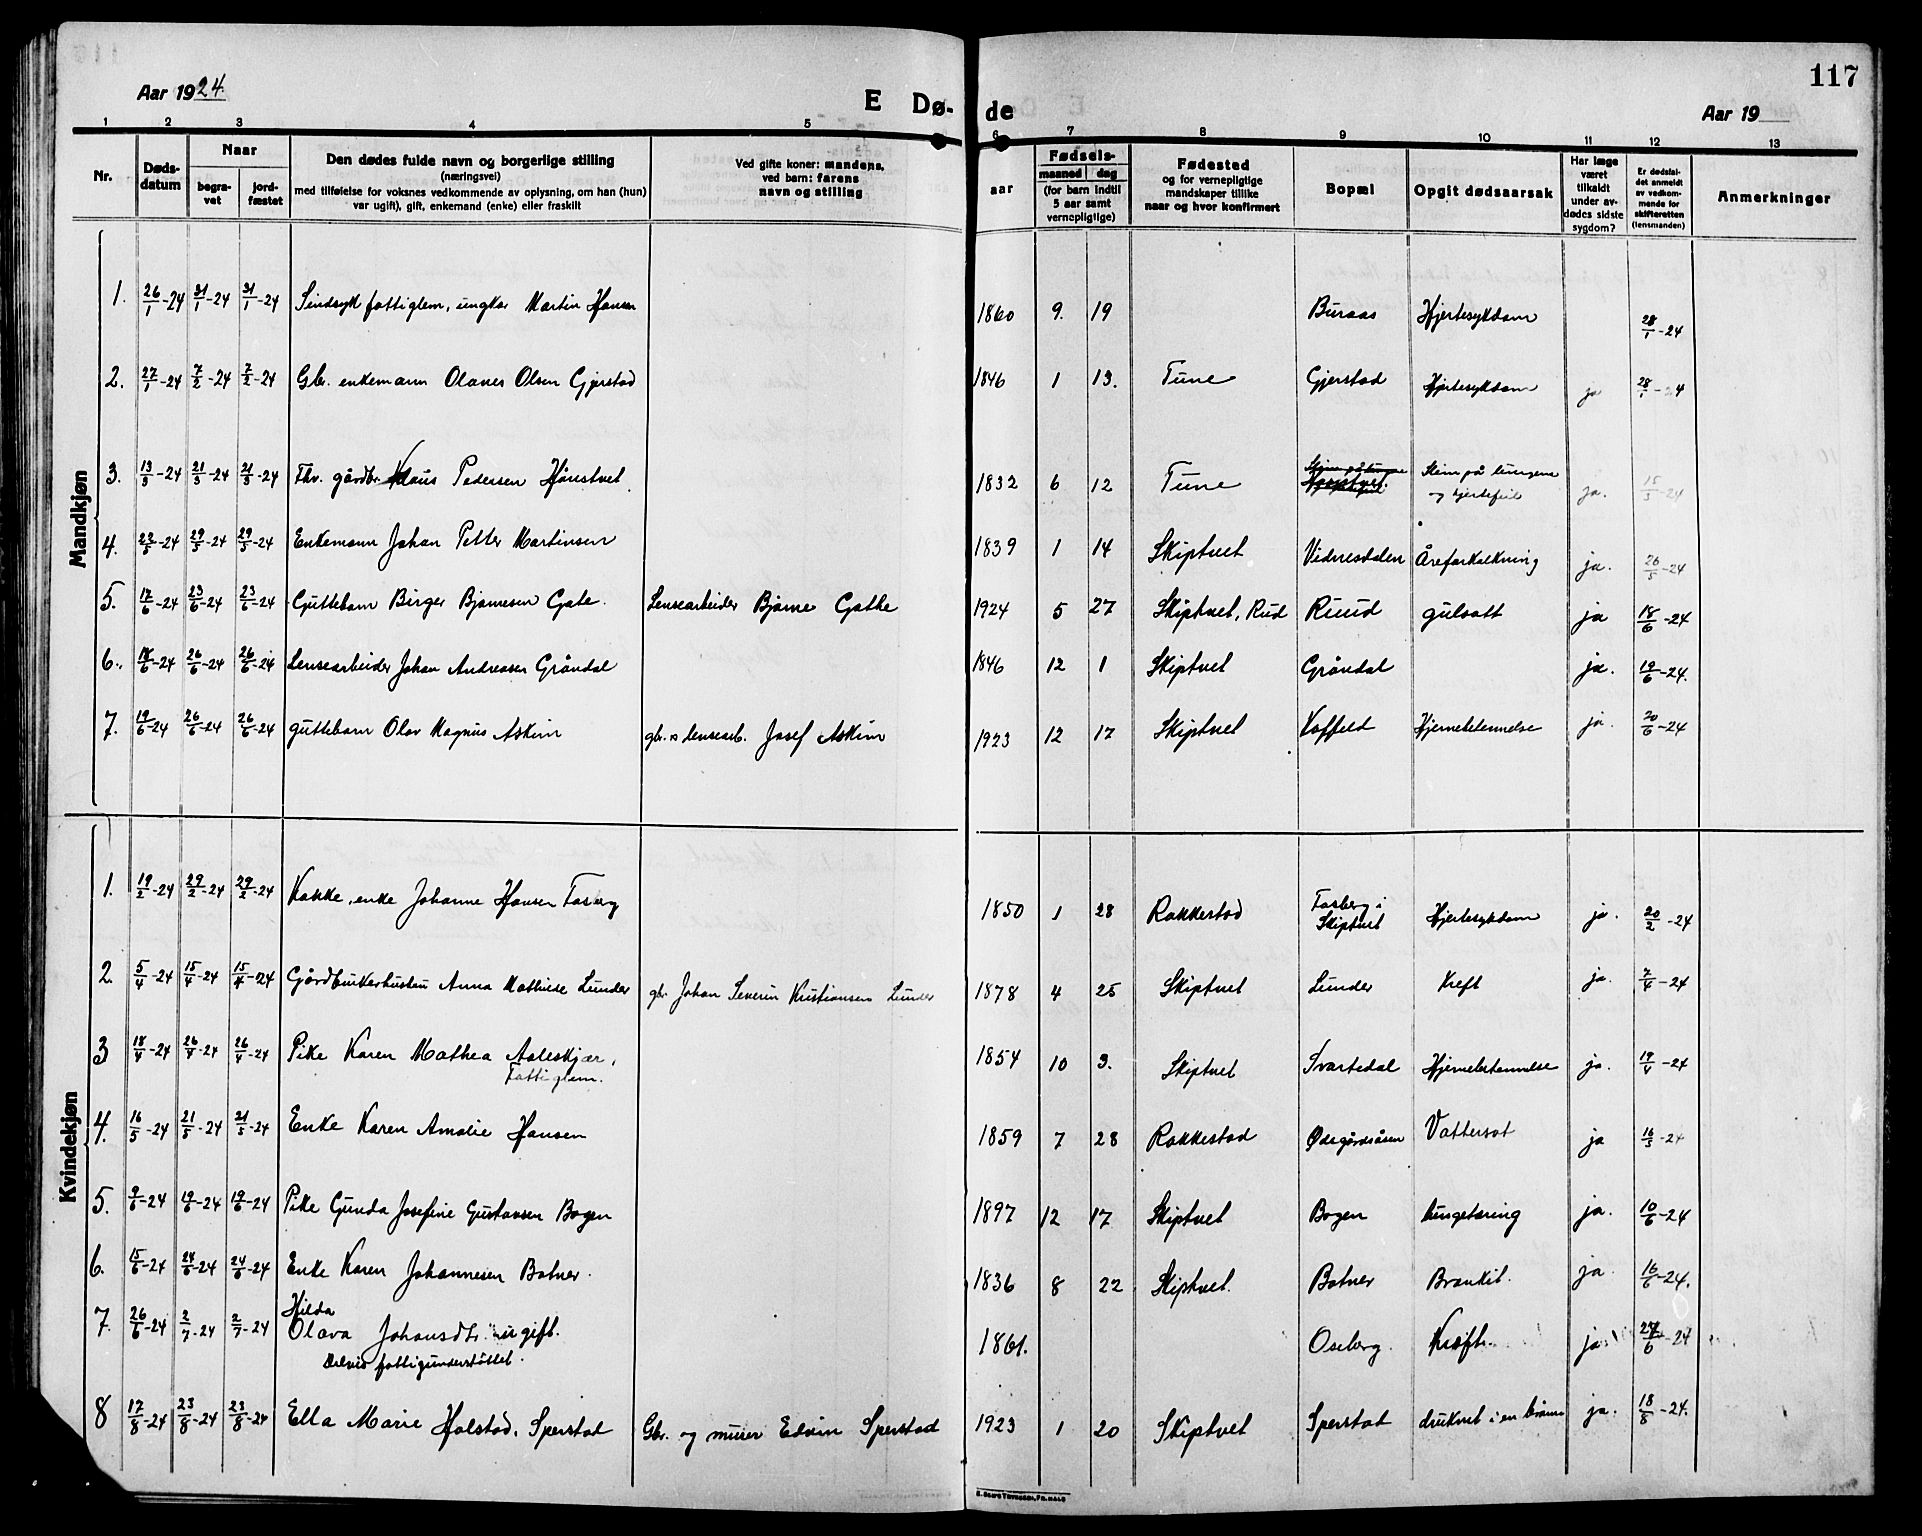 117
Aar 1924.
E Dø- de
Aar 19
1 2 3 4 5 6 7 8 9 10 11 12 13
Nr.
Døds-
datum
Naar
begra-
vet
jord-
fæstet
Den dødes fulde navn og borgerlige stilling
(næringsvei)
med tilføielse for voksnes vedkommende av oplysning, om han (hun)
var ugift), gift, enkemand (enke) eller fraskilt
Ved gifte koner: mandens,
ved barn: farens
navn og stilling
aar
Fødsels-
maaned dag
(for barn indtil
5 aar samt
vernepligtige)
Fødested
og for vernepligtige
mandskaper tillike
naar og hvor konfirmert
Bopæl
Opgit dødsaarsak
Har læge
været
tilkaldt
under av-
dødes sidste
sygdom?
Er dødsfal-
det anmeldt
av vedkom-
mende for
skifteretten
(lensmanden)
Anmerkninger
Mandkjøn
1. 26/1-24 31/1-24 31/1-24 Sindsyk fattiglem, ungkar Martin Hansen 1860 9. 19 Buraas Hjertesykdom 28/1-24
2. 27/1-24 7/2-24 7/2-24 Gbr. enkemann Olaves Olsen Gjerstad 1846 1 13. Tune Gjerstad Hjertesykdom ja 28/1-24
3. 13/3-24 21/3-24 21/3-24 Fhv. gårdbr. Klaus Pedersen Hånstvet 1832 6 12 Tune Slim på lungene
og hjertefeil ja. 15/3-24
4. 23/5-24 29/5-24 29/5-24 Enkemann Johan Petter Martinsen 1839 1 14 Skiptvet Vidnesdalen Åreforkalkning ja. 26/5-24
5. 17/6-24 23/6-24 23/6-24 Guttebarn Birger Bjarnesen Gate. Lensearbeider Bjarne Gathe 1924 5 27 Skiptvet, Rud Ruud gulsott ja 18/6-24
6. 18/6-24 26/6-24 26/6-24 Lensearbeider Johan Andreasen Gråndal 1846 12 1 Skiptvet Gråndal ja. 19/6-24.
7. 19/6-24 26/6-24 26/6-24 guttebarn Olav Magnus Askim gbr. og lensearb. Josef Askim 1923 12 17 Skiptvet Koffeld Hjernebetennelse ja. 20/6-24
Kvindekjøn
1. 19/2-24 29/2-24 29/2-24 Kokke, enke Johanne Hansen Fosberg 1850 1 28 Rakkestad Fosberg i
Skiptvet Hjertesykdom ja. 20/2-24
2. 5/4-24 15/4-24 15/4-24 Gårdbrukerhustru Anna Mathilde Lunder gbr. Johan Severin Kristiansen Lunder 1878 4 25 Skiptvet Lunder Kreft ja. 7/4-24
3 18/4-24 26/4-24 26/4-24 Pike Karen Mathea Asleskjær,
Fattiglem. 1854 10 3. Skiptvet Svartedal Hjernebetennelse ja. 19/4-24
4. 16/5-24 21/5-24 21/5-24 Enke Karen Amalie Hansen 1859 7 28 Rakkestad Ødegårdsåsen Vattersot ja 16/5-24
5. 9/6-24 19/6-24 19/6-24 Pike Gunda Josefine Gustavsen Bogen 1897 12 17 Skiptvet Bogen lungetæring ja. 10/6-24
6. 15/6-24 24/6-24 24/6-24 Enke Karen Johannesen Botner. 1836 8 22 Skiptvet. Botner Bronkit. ja. 16/6-24.
7. 26/6-24 2/7-24 2/7-24 Hilda
Olava Johansdtr. ugift.
Delvis fattigunderstøttet. 1861. Oseberg. Kræft. ja 27/6-24
8 17/8-24 23/8-24 23/8-24 Ella Marie Holstad, Sperstad Gbr. og murer Edvin Sperstad 1923 1 20 Skiptvet Sperstad druknet i en brønn ja. 18/8-24.